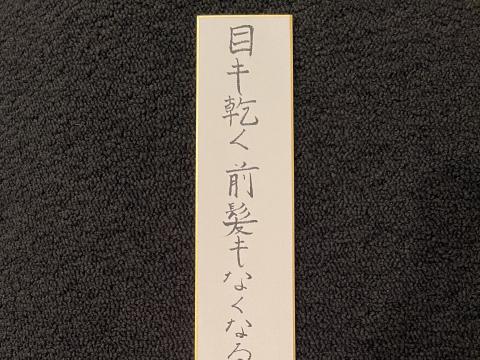 目も乾く前髪もなくなる